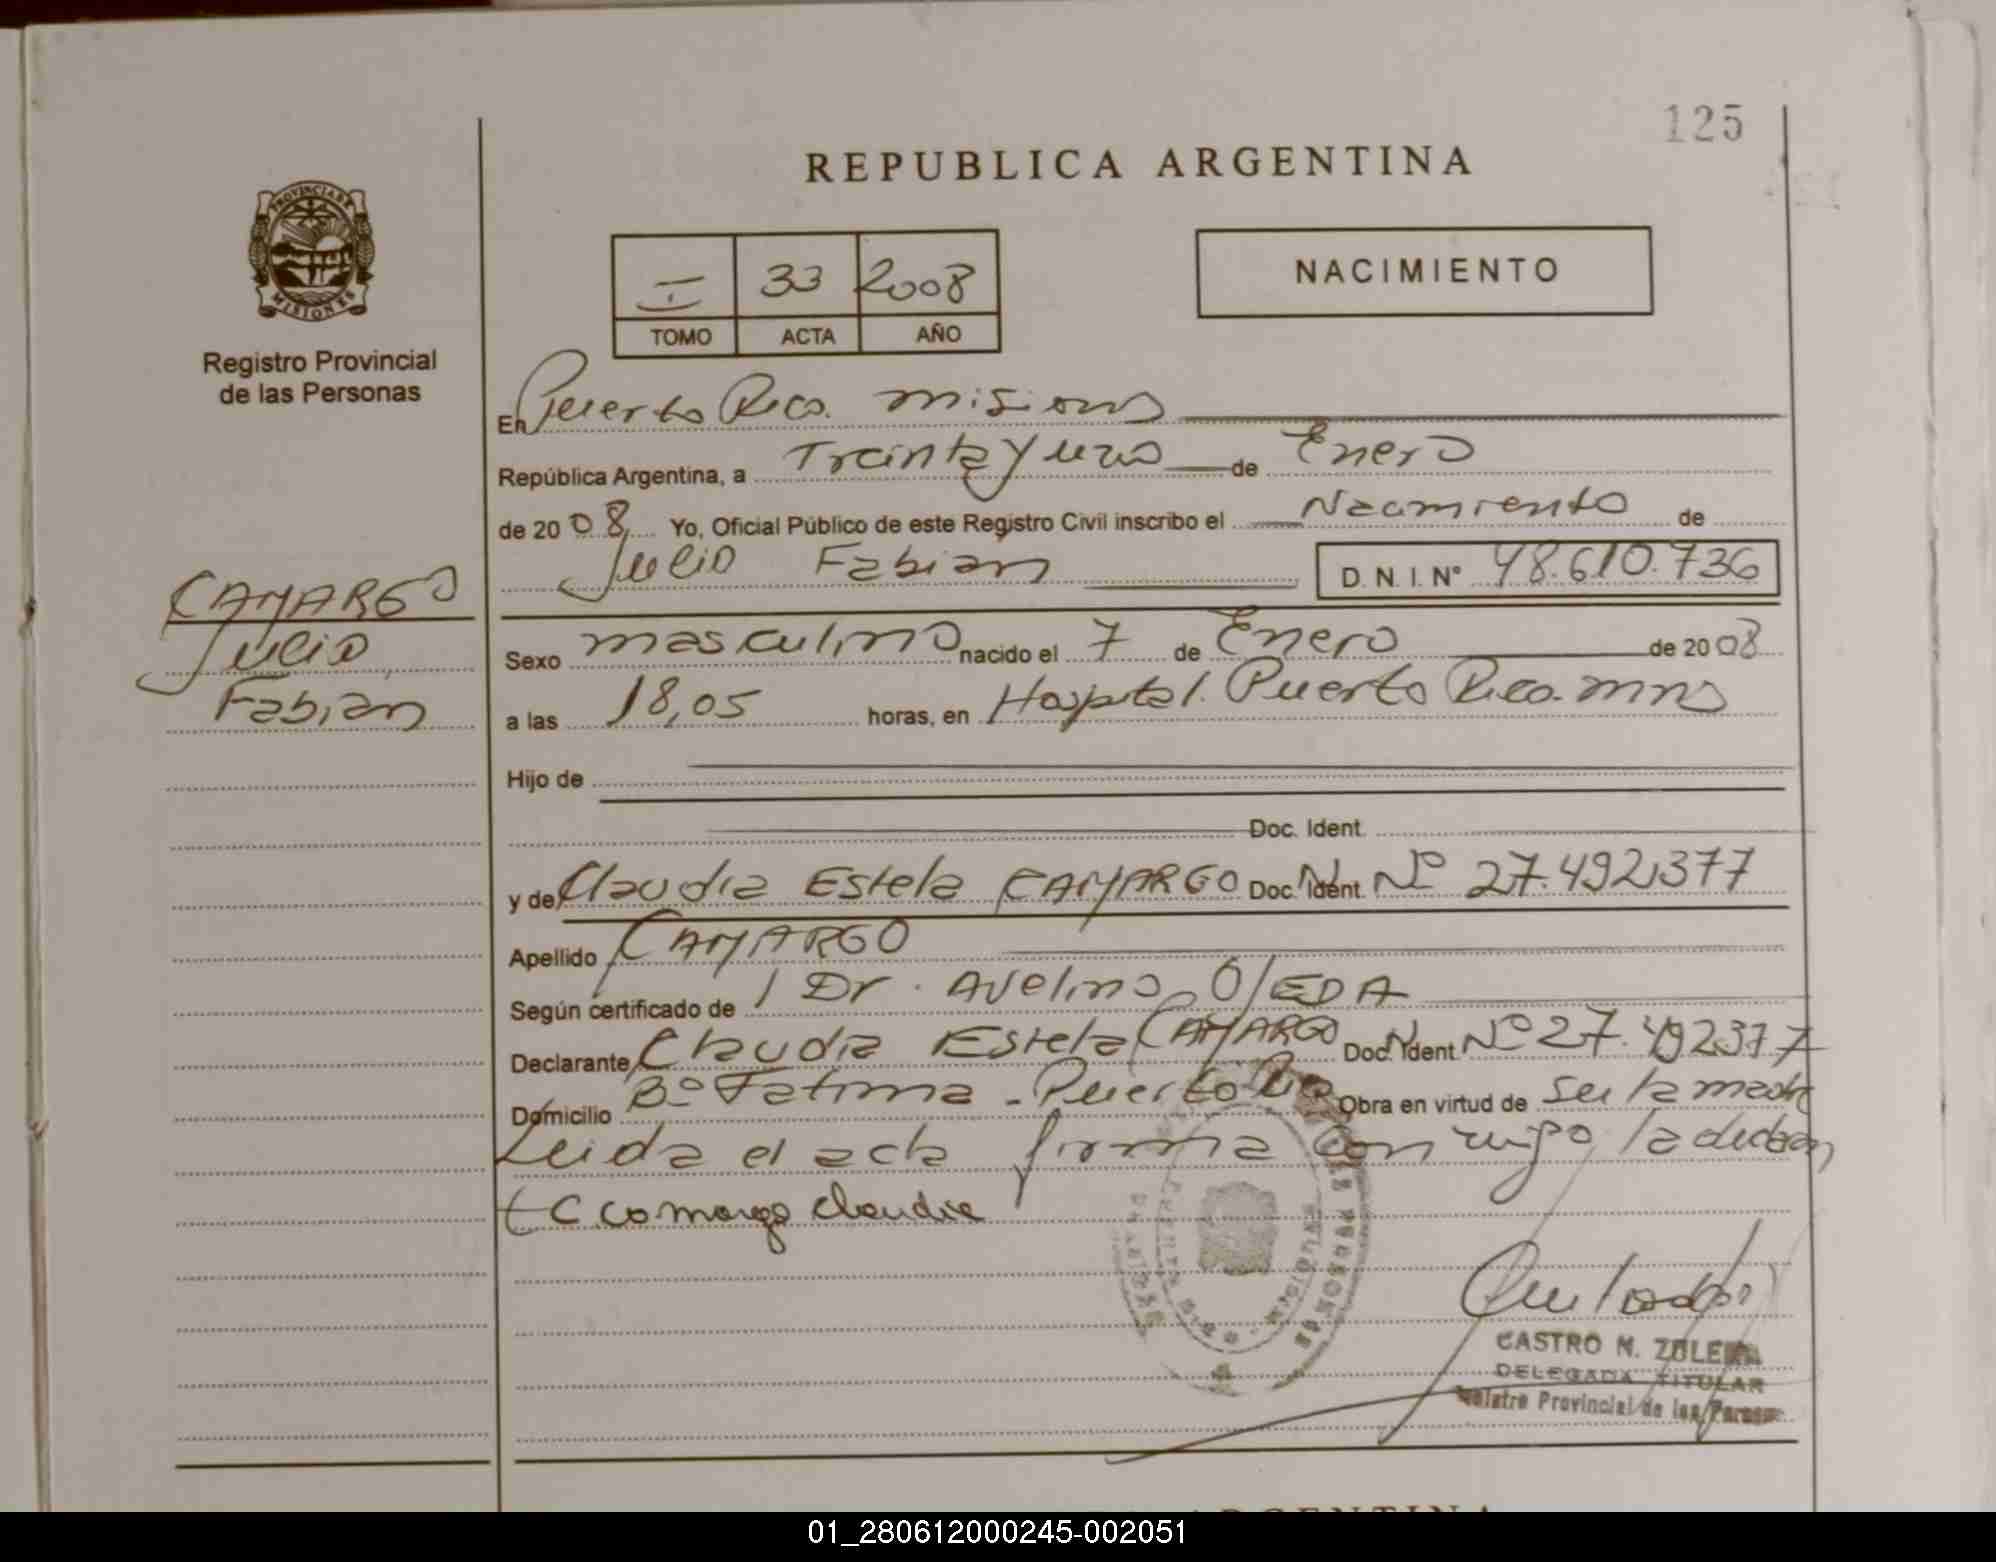 125
REPUBLICA ARGENTINA
PROVINCIA DE
MISIONES
Registro Provincial
de las Personas
I 33 2008
TOMO ACTA AÑO
NACIMIENTO
En Puerto Rico. Misiones
República Argentina, a Treinta y uno de Enero
de 2008, Yo, Oficial Público de este Registro Civil inscribo el Nacimiento de
Julio Fabian D. N. I. Nº 48.610.736
CAMARGO
Julio
Fabian
Sexo masculino nacido el 7 de Enero de 2008
a las 18,05 horas, en Hospital. Puerto Rico. mnes
Hijo de
Doc. Ident.
y de Claudia Estela CAMARGO Doc. Ident. Nº 27.492.377
Apellido CAMARGO
Según certificado de Dr. Avelino OJEDA
Declarante Claudia Estela CAMARGO Doc. Ident Nº 27.492377
Domicilio Bº Fatima - Puerto Rico Obra en virtud de ser la madre
Leida el acta firma con migo la
Camargo Claudia
CASTRO N.
DELEGADA TITULAR
Provincial de las
ARGENTINA
01_280612000245-002051